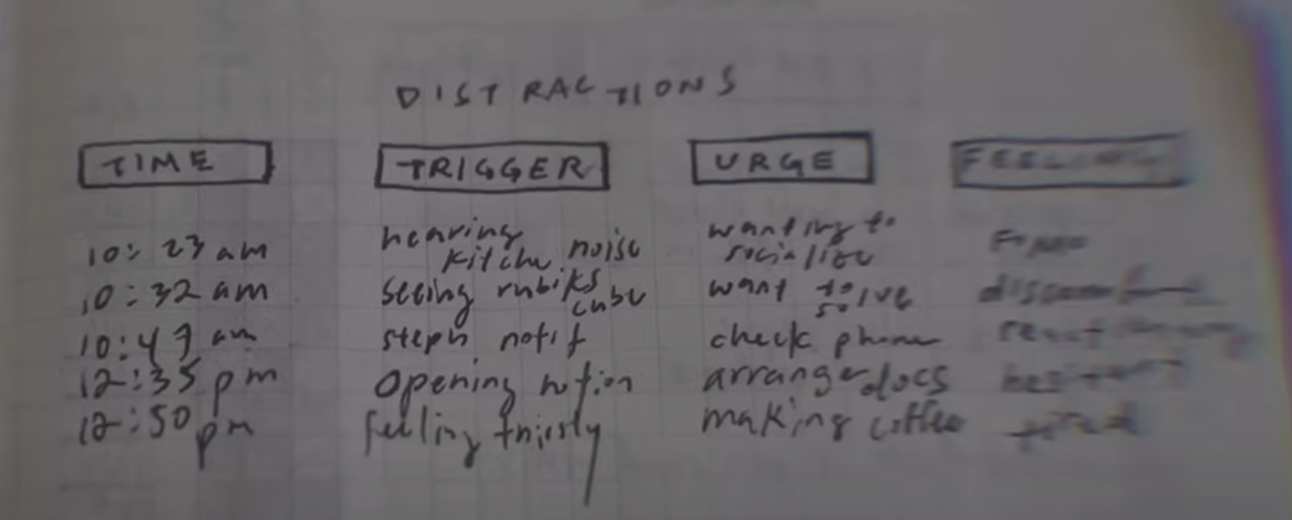 DISTRACTIONS
TIME TRIGGER URGE FEELING
10:23 am hearing kitche noise wanting to socialize FOMO
10:32 am seeing rubiks cube want to solve discomfort
10:47 am steph notif check phone
12:35 pm opening notion arrange docs hesitant
12:50 pm feeling thirsty making coffee tired